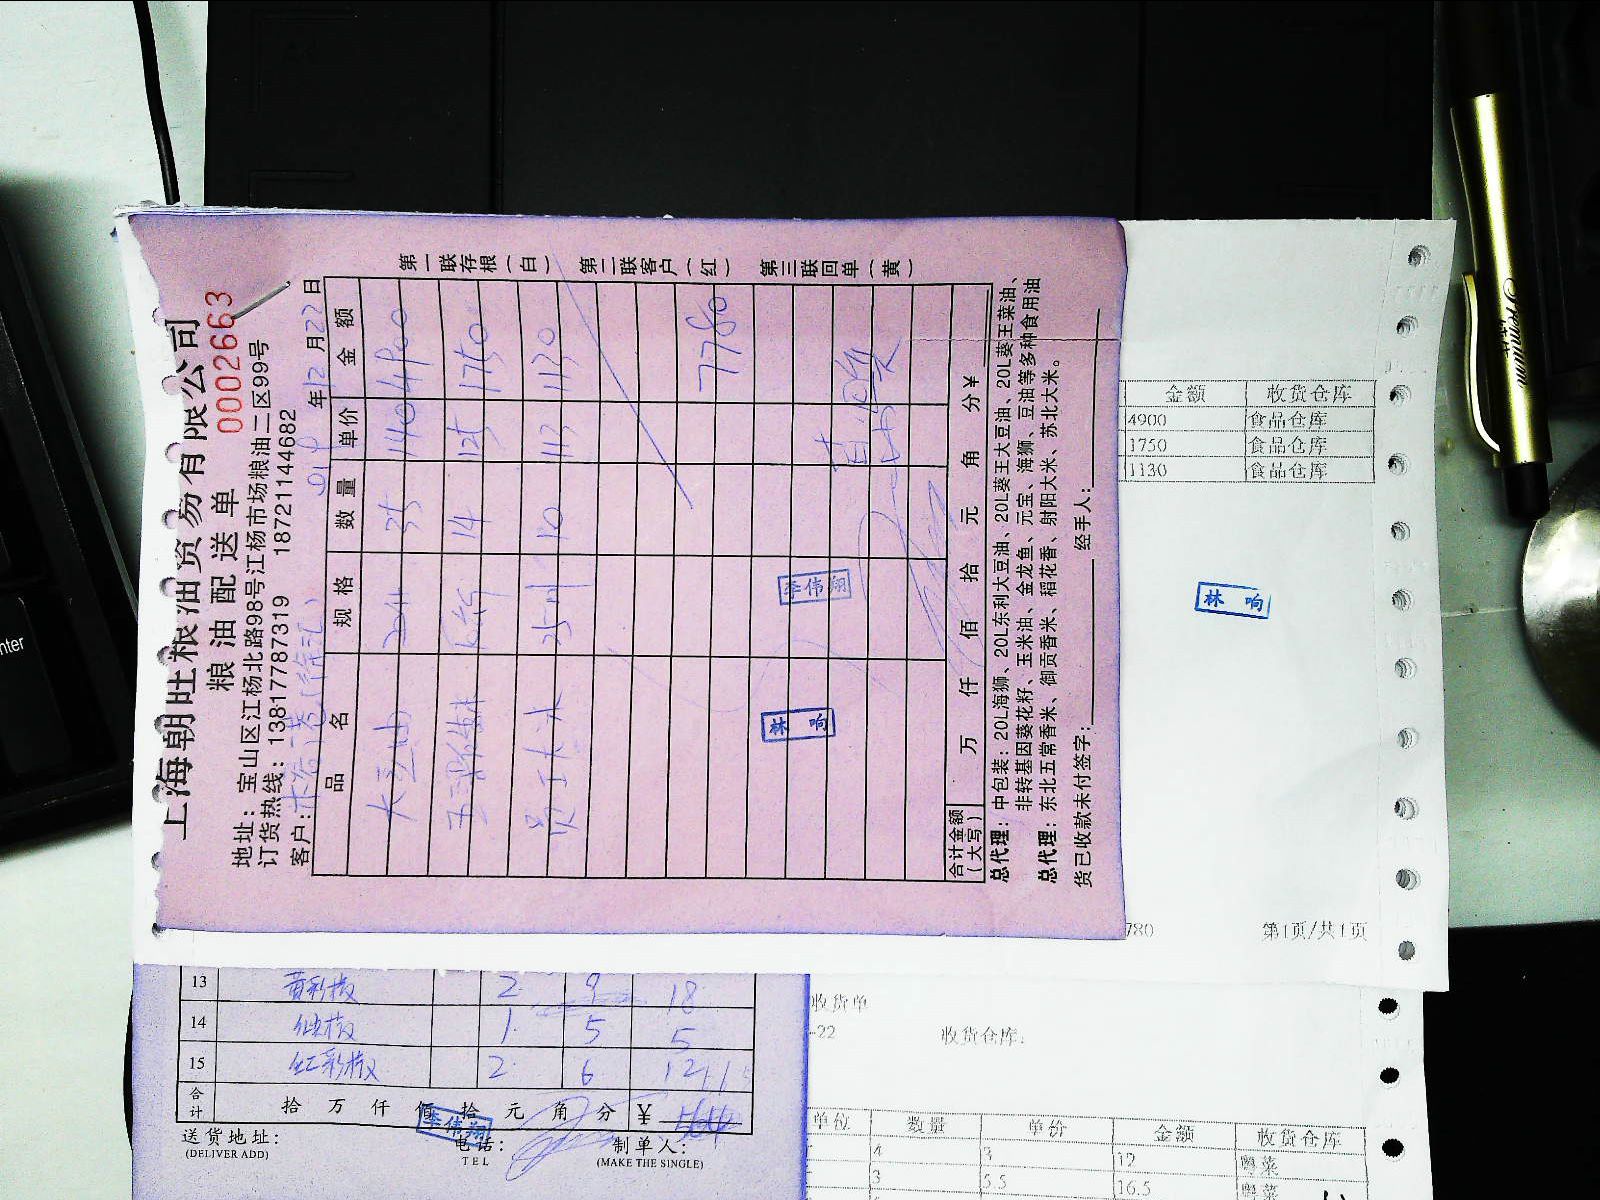 上海朝旺粮油贸易有限公司
粮油配送单 0002663
地址：宝山区江杨北路98号江杨市场粮油二区99号
订货热线：13817787319 18721144682
客户： 年12月22日
品名 规格 数量 单价 金额
大豆油 20L 35 140 4900
14 125 1750
员工大米 25 10 113 1130
7780
李伟翔
林响
合计金额（大写） 万 仟 佰 拾 元 角 分 ¥
第一联存根（白） 第二联客户（红） 第三联回单（黄）
总代理：中包装：20L海狮、20L东利大豆油、20L葵王大豆油、20L葵王菜油、
非转基因葵花籽、玉米油、金龙鱼、元宝、海狮、豆油等多种食用油
总代理：东北五常香米、御贡香米、稻花香、射阳大米、苏北大米。
货已收款未付签字： 经手人：
金额 收货仓库
4900 食品仓库
1750 食品仓库
1130 食品仓库
林响
780 第1页/共1页
13 黄彩椒 2 9 18
14 1 5 5
15 红彩椒 2 6 12
合计 拾 万 仟 佰 拾 元 角 分 ¥
李伟翔
送货地址： 电话： 制单人：
(DELIVER ADD) TEL (MAKE THE SINGLE)
收货单
-22 收货仓库：
单位 数量 单价 金额 收货仓库
4 3 12 粤菜
3 5.5 16.5 粤菜
nter